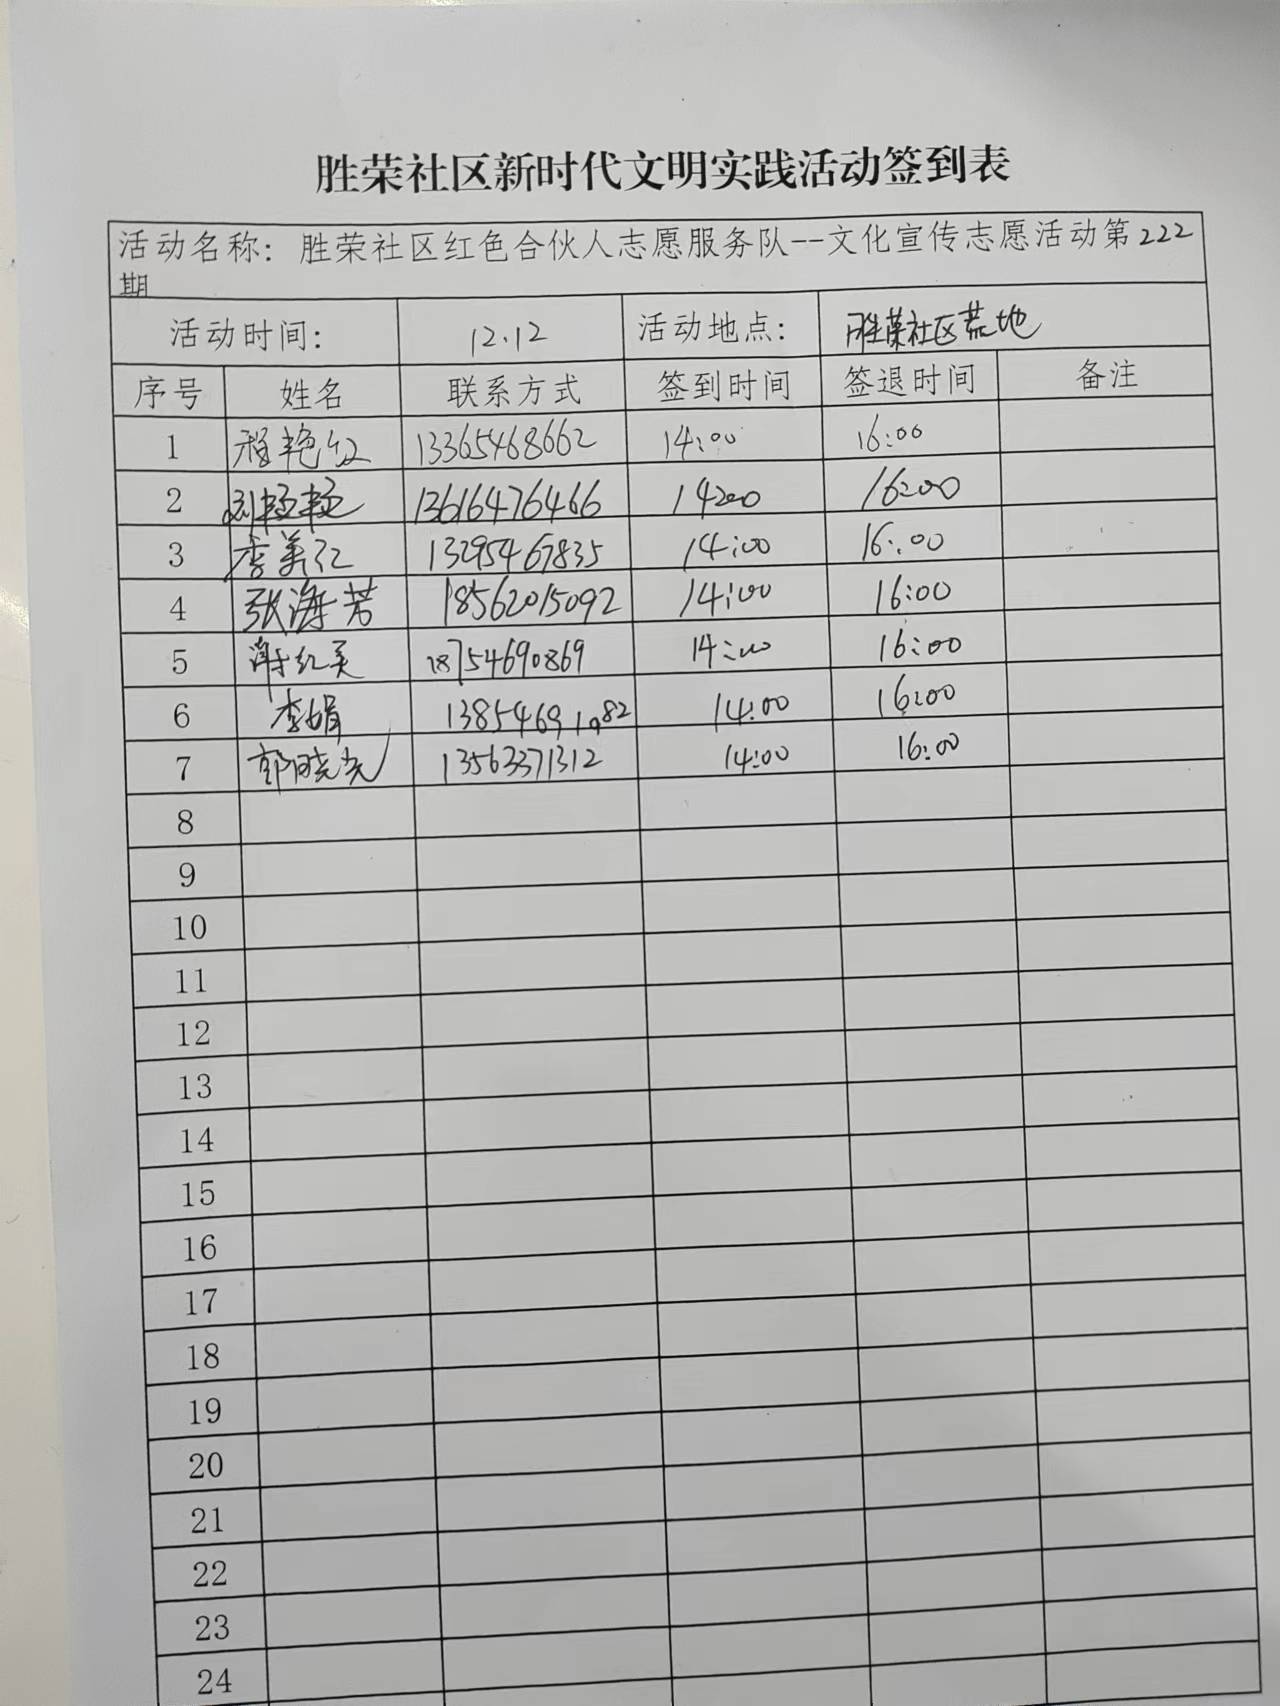 胜荣社区新时代文明实践活动签到表
活动名称：胜荣社区红色合伙人志愿服务队--文化宣传志愿活动第222
期
活动时间： 12.12 活动地点： 胜荣社区荒地
序号 姓名 联系方式 签到时间 签退时间 备注
1 程艳红 13365468662 14:00 16:00
2 13616476466 14:00 16:00
3 李美红 13295467835 14:00 16:00
4 张海芳 18562015092 14:00 16:00
5 谢红英 18754690869 14:00 16:00
6 李娟 13854691982 14:00 16:00
7 郭晓光 13563371312 14:00 16:00
8
9
10
11
12
13
14
15
16
17
18
19
20
21
22
23
24